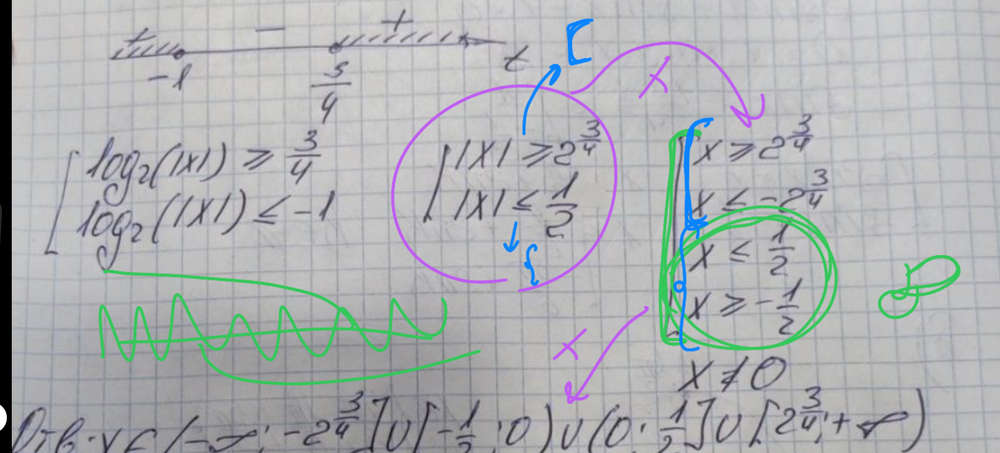 + − +
-1 3/4 t
[
x
log₂(|x|) ≥ 3/4
log₂(|x|) ≤ -1
|x| ≥ 2^(3/4)
|x| ≤ 1/2
{
x ≥ 2^(3/4)
x ≤ -2^(3/4)
x ≤ 1/2
x ≥ -1/2
x ≠ 0
x
Отв: x ∈ (-∞; -2^(3/4)] ∪ [-1/2; 0) ∪ (0; 1/2] ∪ [2^(3/4); +∞)